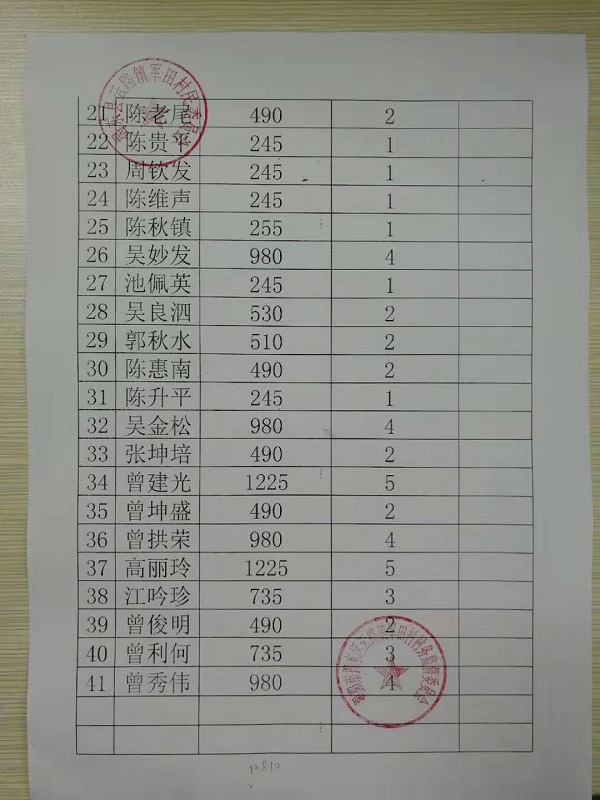 21 陈老尾 490 2
22 陈贵平 245 1
23 周钦发 245 1
24 陈维声 245 1
25 陈秋镇 255 1
26 吴妙发 980 4
27 池佩英 245 1
28 吴良泗 530 2
29 郭秋水 510 2
30 陈惠南 490 2
31 陈升平 245 1
32 吴金松 980 4
33 张坤培 490 2
34 曾建光 1225 5
35 曾坤盛 490 2
36 曾拱荣 980 4
37 高丽玲 1225 5
38 江吟珍 735 3
39 曾俊明 490 2
40 曾利何 735 3
41 曾秀伟 980 4